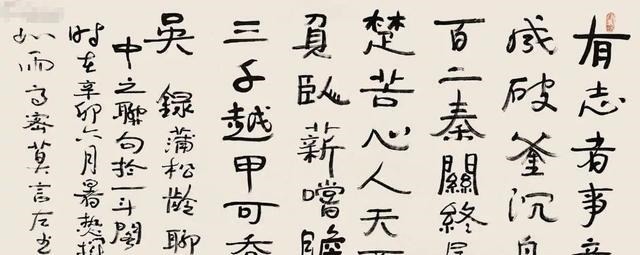 有志者事竟
成破釜沉舟
百二秦關終
楚苦心人天
負臥薪嚐膽
三千越甲可吞
吳 錄蒲松齡聊
中之聯句於一斗閣
時在辛卯六月暑熱揮
如雨高密莫言左書